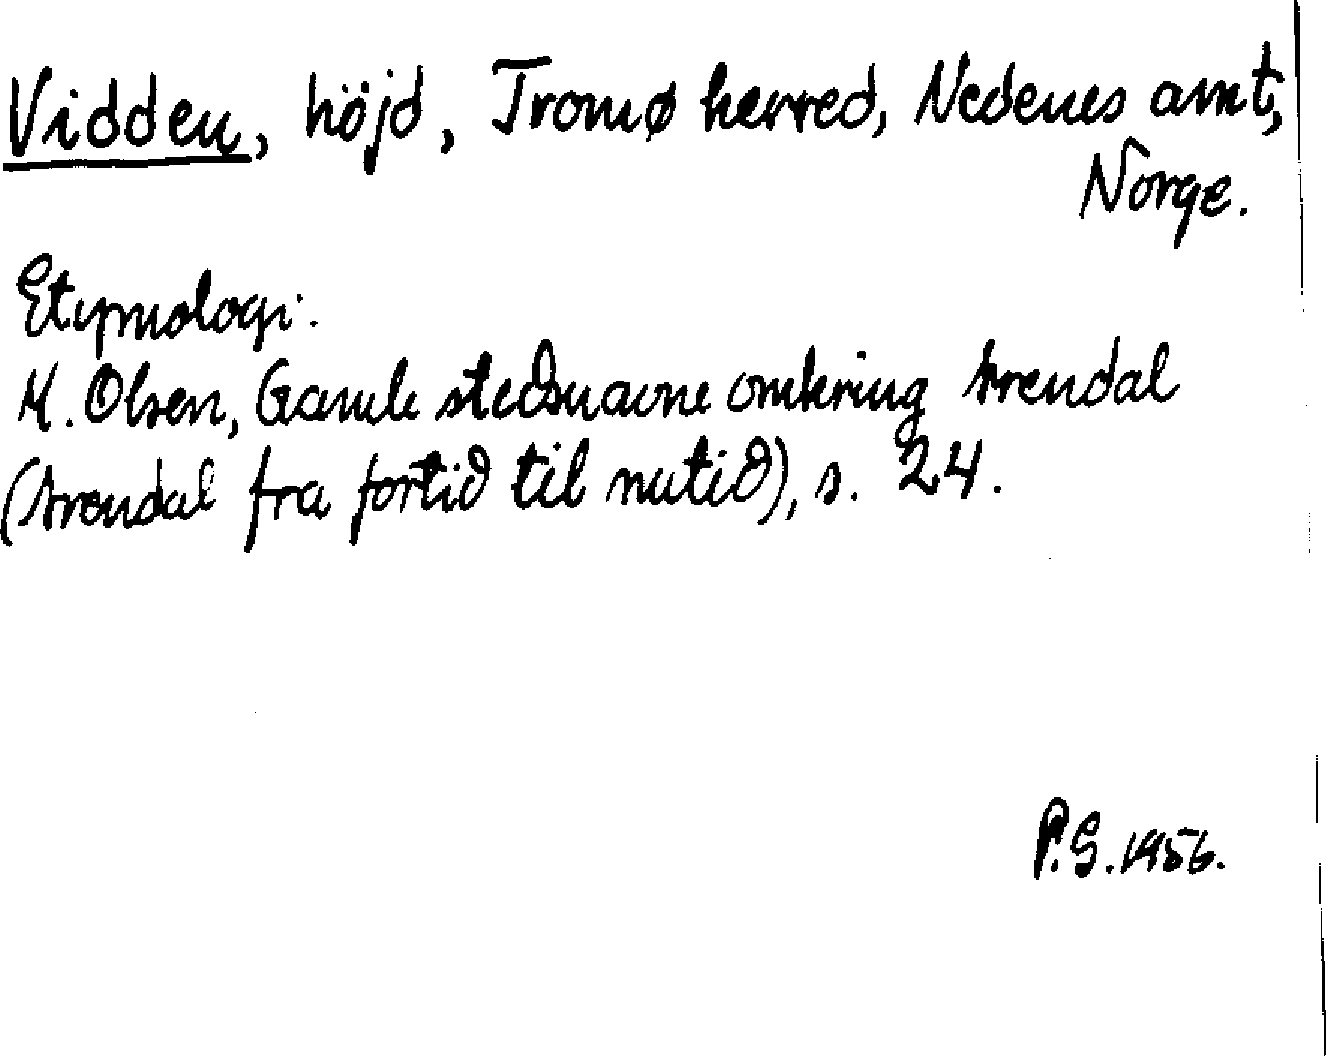 Vidden, höjd, Tromø herred, Nedenes amt,
Norge.
Etymologi:
M. Olsen, Gamle stedsnavne omkring Arendal
(Arendal fra fortid til nutid), s. 24.
P.S. 1956.